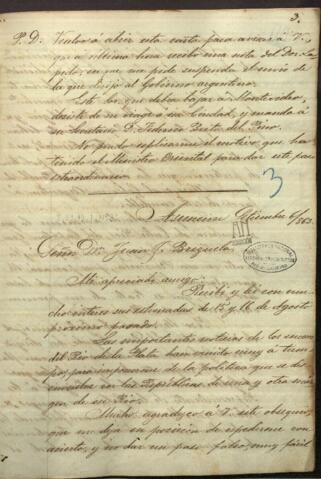 3.
P. D. Vuelvo á abrir esta carta para avisar á V.,
que á última hora recibo una nota del Dor. La-
pido, en que me pide suspenda el envio de
la que dirijo al Gobierno argentino.
Este Sor. que debia bajar á Montevideo,
desiste de su viaje a su Ciudad, y manda á
su Secretario D. Federico Brito del Pino.
No puedo esplicarme el motivo que ha
tenido el Ministro Oriental para dar este paso
extraordinario.
3
Asuncion Setiembre 6/863.
Señor Dn. Juan J. Brizuela.
Mi apreciado amigo.
Recibí y leí con mu-
cho interes sus estimadas de 15 y 16 de Agosto
próximo pasado.
Las importantes noticias de los sucesos
del Rio de la Plata han venido muy á tiem-
po, para imponerme de la politica que se de-
en las Repúblicas de una y otra már-
gen de ese Rio.
Mucho agradezco á V. este obsequio,
que me deja en posicion de espedirme con
acierto, y no dar un paso falso, muy facil